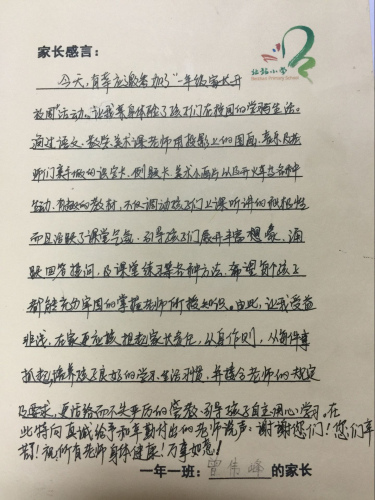 家长感言：
今天，有幸应邀参加了"一年级家长开
放周"活动。让我亲身体验了孩子们在校园的学习与生活。
通过语文、数学、美术课老师用投影上的图画、音乐及老
师们亲手做的识字卡、倒顺卡、美术小画片以及开火车等各种
生动、有趣的教材，不仅调动孩子们上课听讲的积极性
而且活跃了课堂气氛，引导孩子们展开丰富想象，涌
跃回答提问，及课堂练习等各种方法，希望每个孩子
都能充分牢固的掌握老师所授知识。由此，让我受益
非浅，在家更应该担起家长责任，从身作则，从每件事
抓起培养孩子良好的学习、生活习惯，并接合老师的规定
及要求，更恰恰而不失严厉的管教、引导孩子自主用心学习。在
此特向真诚给予和辛勤付出的老师说声：谢谢您们！您们辛
苦！祝所有老师身体健康！万事如意！
一年一班： 伟峰 的家长
小学
Primary School